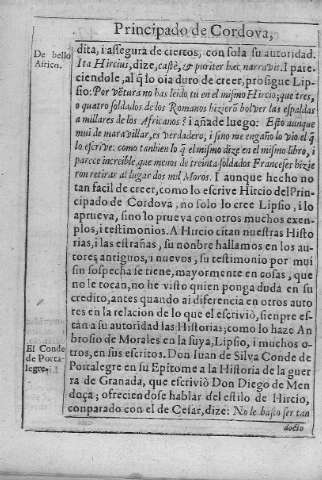 Principado de Cordova,
De bello
Africo.
dita, i assegura de ciertos, con sola su autoridad.
Ita Hircius, dize, castè, & pariter hæc narravit. I pare-
ciendole, al q̃ lo oia duro de creer, prosigue Lip-
sio: Por vētura no has leido tu en el mismo Hircio, que tres,
o quatro soldados de los Romanos hazierō bolver las espaldas
a millares de los Africanos? i añade luego: Esto aunque
mui de maravillar, es verdadero, i sino me engaño lo vio el q̃
lo escrive: como tambien lo q̃ el mismo dize en el mismo libro, i
parece increible que menos de treinta soldados Franceses hizie
ron retirar al lugar dos mil Moros. I aunque hecho no
tan facil de creer, como lo escrive Hircio del Prin-
cipado de Cordova, no solo lo cree Lipsio, i lo
aprueva, sino lo prueva con otros muchos exen-
plos, i testimonios. A Hircio citan nuestras Histo
rias, i las estrañas, su nonbre hallamos en los au-
tores antiguos, i nuevos, su testimonio por mui
sin sospecha se tiene, mayormente en cosas, que
no le tocan, no he visto quien ponga duda en su
credito, antes quando ai diferencia en otros auto
res en la relacion de lo que el escriviò, sienpre es-
tàn a su autoridad las Historias; como lo haze An
brosio de Morales en la suya, Lipsio, i muchos o-
tros, en sus escritos. Don Juan de Silva Conde de
Portalegre en su Epitome a la Historia de la guer
ra de Granada, que escriviò Don Diego de Men
doça; ofreciendose hablar del estilo de Hircio,
conparado con el de Cesar, dize: No le basto ser tan
El Conde
de Porta-
legre.
docto